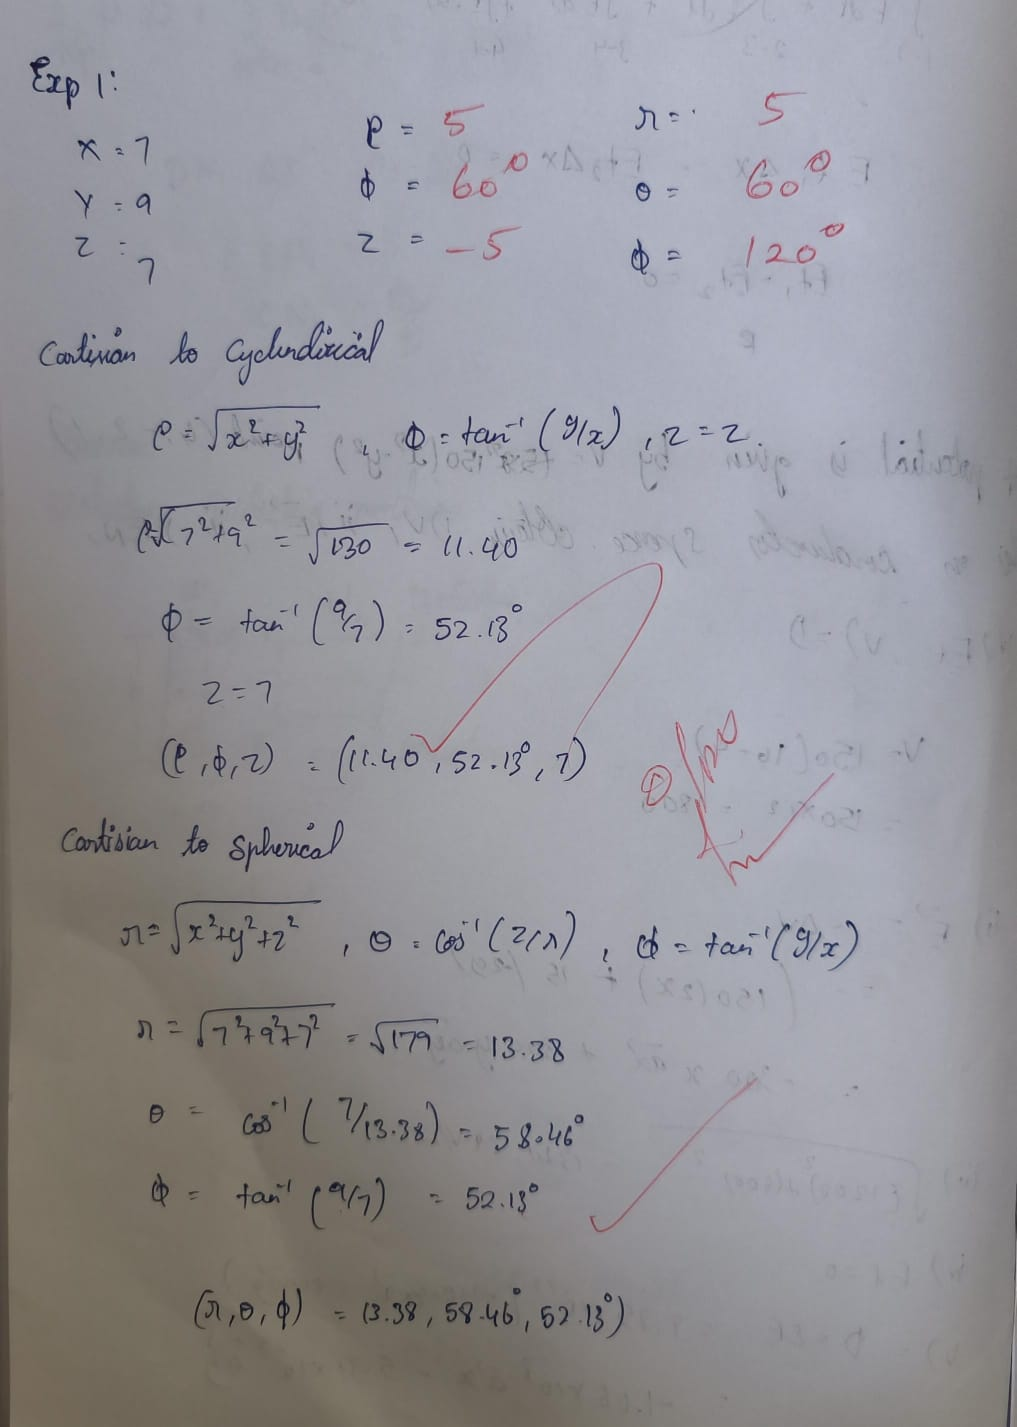 Exp 1:
x = 7
y = 9
z = 7
ρ = 5
ϕ = 60°
z = -5
r = 5
θ = 60°
ϕ = 120°
Cartisian to Cyclindirical
ρ = √x²+y² , ϕ = tan⁻¹ (y/x) , z = z.
ρ = √7²+9² = √130 = 11.40
ϕ = tan⁻¹ (9/7) = 52.13°
z = 7
(ρ, ϕ, z) = (11.40, 52.13°, 7)
Cartisian to Spherical
r = √x²+y²+z² , θ = cos⁻¹ (z/r) , ϕ = tan⁻¹ (y/x)
r = √7²+9²+7² = √179 = 13.38
θ = cos⁻¹ (7/13.38) = 58.46°
ϕ = tan⁻¹ (9/7) = 52.13°
(r, θ, ϕ) = 13.38, 58.46°, 52.13°)